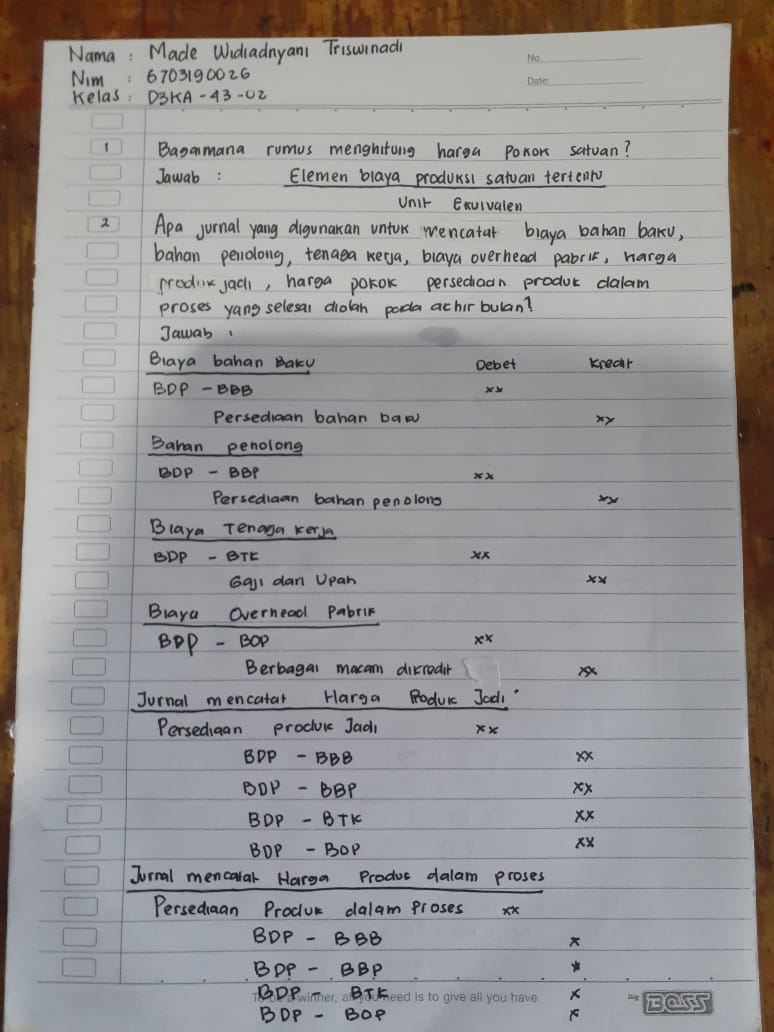 Nama : Made Widiadnyani Triswinadi
No.
Nim : 6703190026
Date:
Kelas : D3KA - 43 - 02
1 Bagaimana rumus menghitung harga pokok satuan?
Jawab : Elemen biaya produksi satuan tertentu
Unit Ekuivalen
2 Apa jurnal yang digunakan untuk mencatat biaya bahan baku,
bahan penolong, tenaga kerja, biaya overhead pabrik, harga
produk jadi, harga pokok persediaan produk dalam
proses yang selesai diolah pada achir bulan?
Jawab :
Biaya bahan Baku Debet Kredit
BDP - BBB xx
Persediaan bahan baku xx
Bahan penolong
BDP - BBP xx
Persediaan bahan penolong xx
Biaya Tenaga kerja
BDP - BTK xx
Gaji dan Upah xx
Biaya Overhead Pabrik
BDP - BOP xx
Berbagai macam dikredit xx
Jurnal mencatat Harga Produk Jadi
Persediaan produk Jadi xx
BDP - BBB xx
BDP - BBP xx
BDP - BTK xx
BDP - BOP xx
Jurnal mencatat Harga Produk dalam proses
Persediaan Produk dalam Proses xx
BDP - BBB x
BDP - BBP x
BDP - BTK x
To be a winner, all you need is to give all you have BOSS
BDP - BOP x